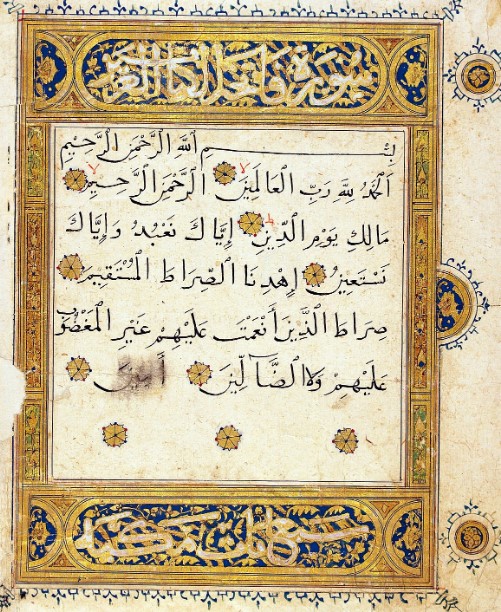 سورة فاتحة الكتاب
بِسْمِ ٱللَّهِ ٱلرَّحْمٰنِ ٱلرَّحِيمِ
اَلْحَمْدُ لِلَّهِ رَبِّ ٱلْعَالَمِينَ ٱلرَّحْمٰنِ ٱلرَّحِيمِ
مَالِكِ يَوْمِ ٱلدِّينِ إِيَّاكَ نَعْبُدُ وَإِيَّاكَ
نَسْتَعِينُ إِهْدِنَا ٱلصِّرَاطَ ٱلْمُسْتَقِيمَ
صِرَاطَ ٱلَّذِينَ أَنْعَمْتَ عَلَيْهِمْ غَيْرِ ٱلْمَغْضُوبِ
عَلَيْهِمْ وَلَا ٱلضَّآلِّينَ آمِينَ
سبع آيات مكية